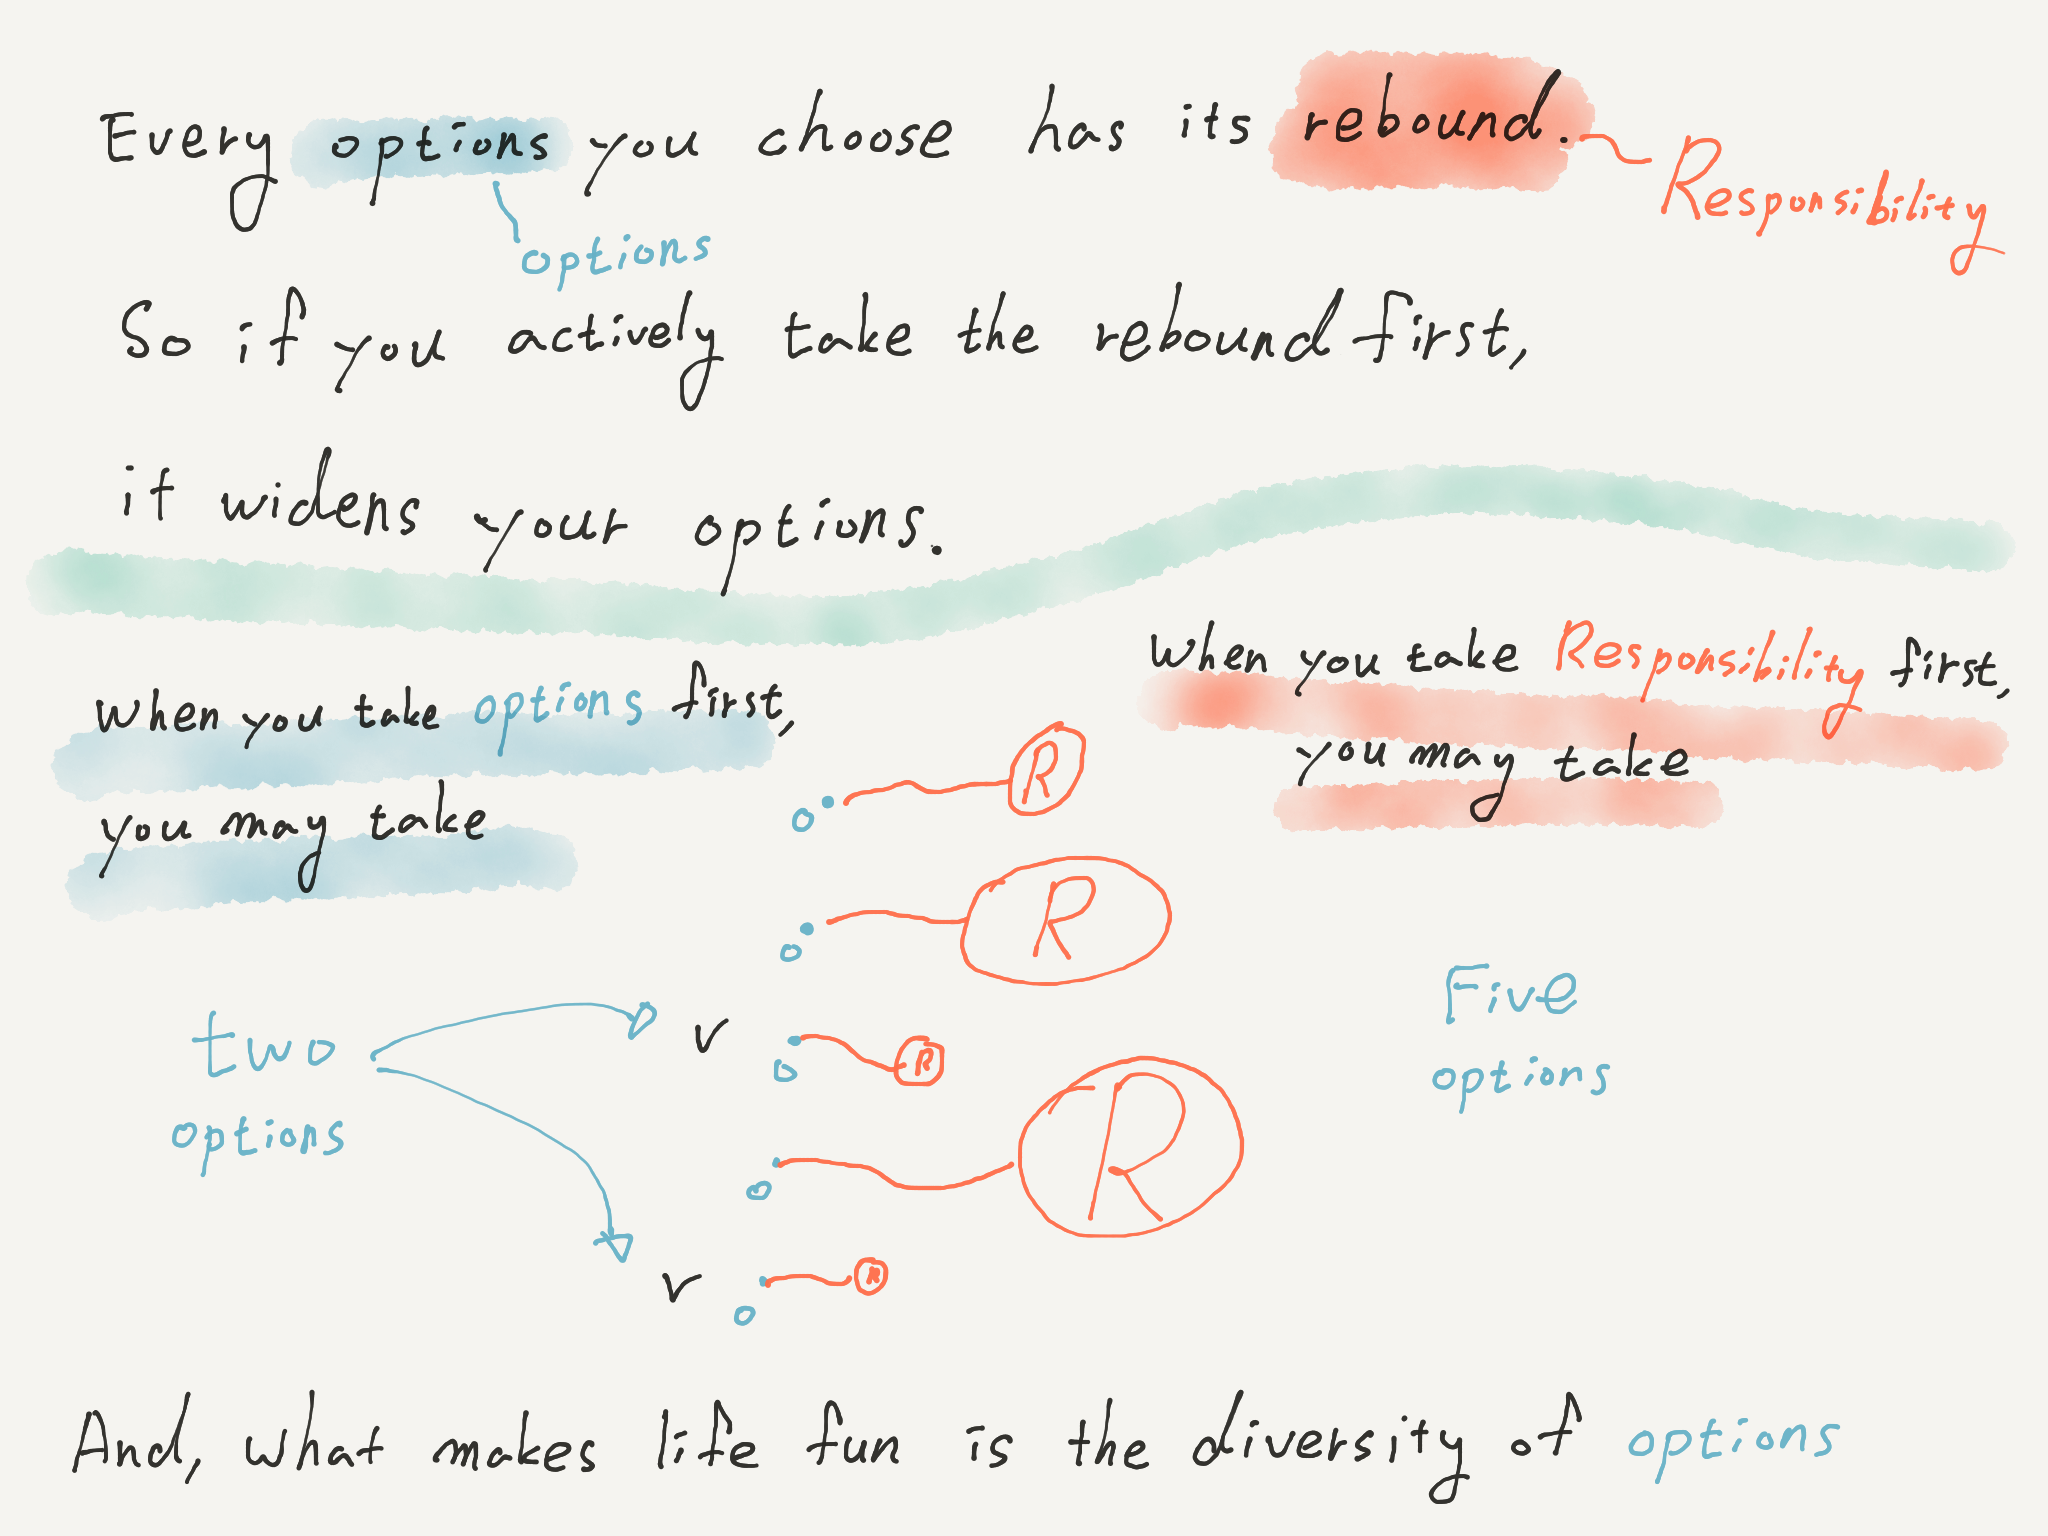 Every options you choose has its rebound.
Responsibility
options
So if you actively take the rebound first,
it widens your options.
When you take options first,
you may take
When you take Responsibility first,
you may take
R
o
R
o
two
options
v
R
o
Five
options
R
o
v
R
o
And, what makes life fun is the diversity of options